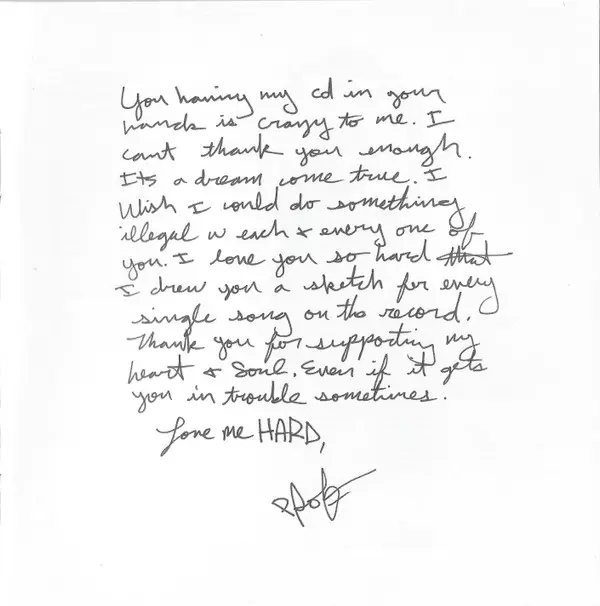 You having my cd in your
hands is crazy to me. I
cant thank you enough.
Its a dream come true. I
Wish I could do something
illegal w each & every one of
you. I love you so hard that
I drew you a sketch for every
single song on the record.
Thank you for supporting my
heart & Soul. Even if it gets
you in trouble sometimes.
Love me HARD,